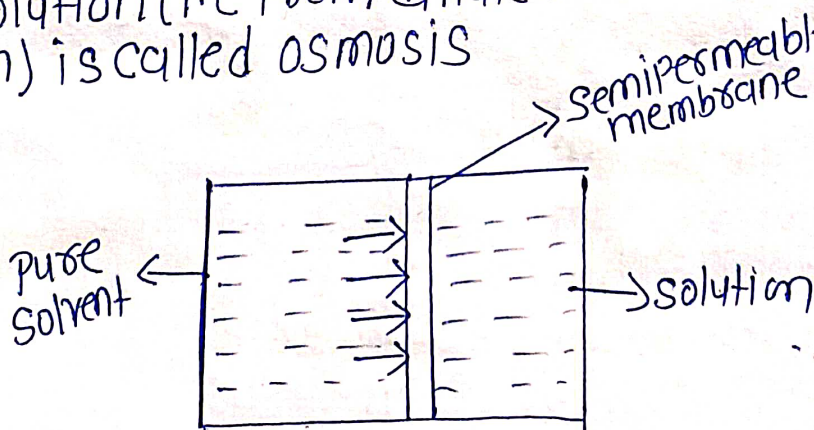 is called osmosis
semipermeabl
membrane
pure
solvent
solution